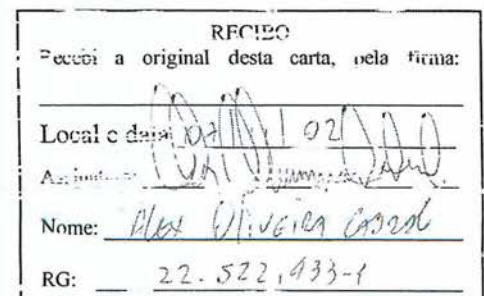 RECIBO
Recebi a original desta carta, pela firma:
Local e data: 07 02
Assinatura:
Nome: Alex Oliveira Cabral
RG: 22.522.933-1